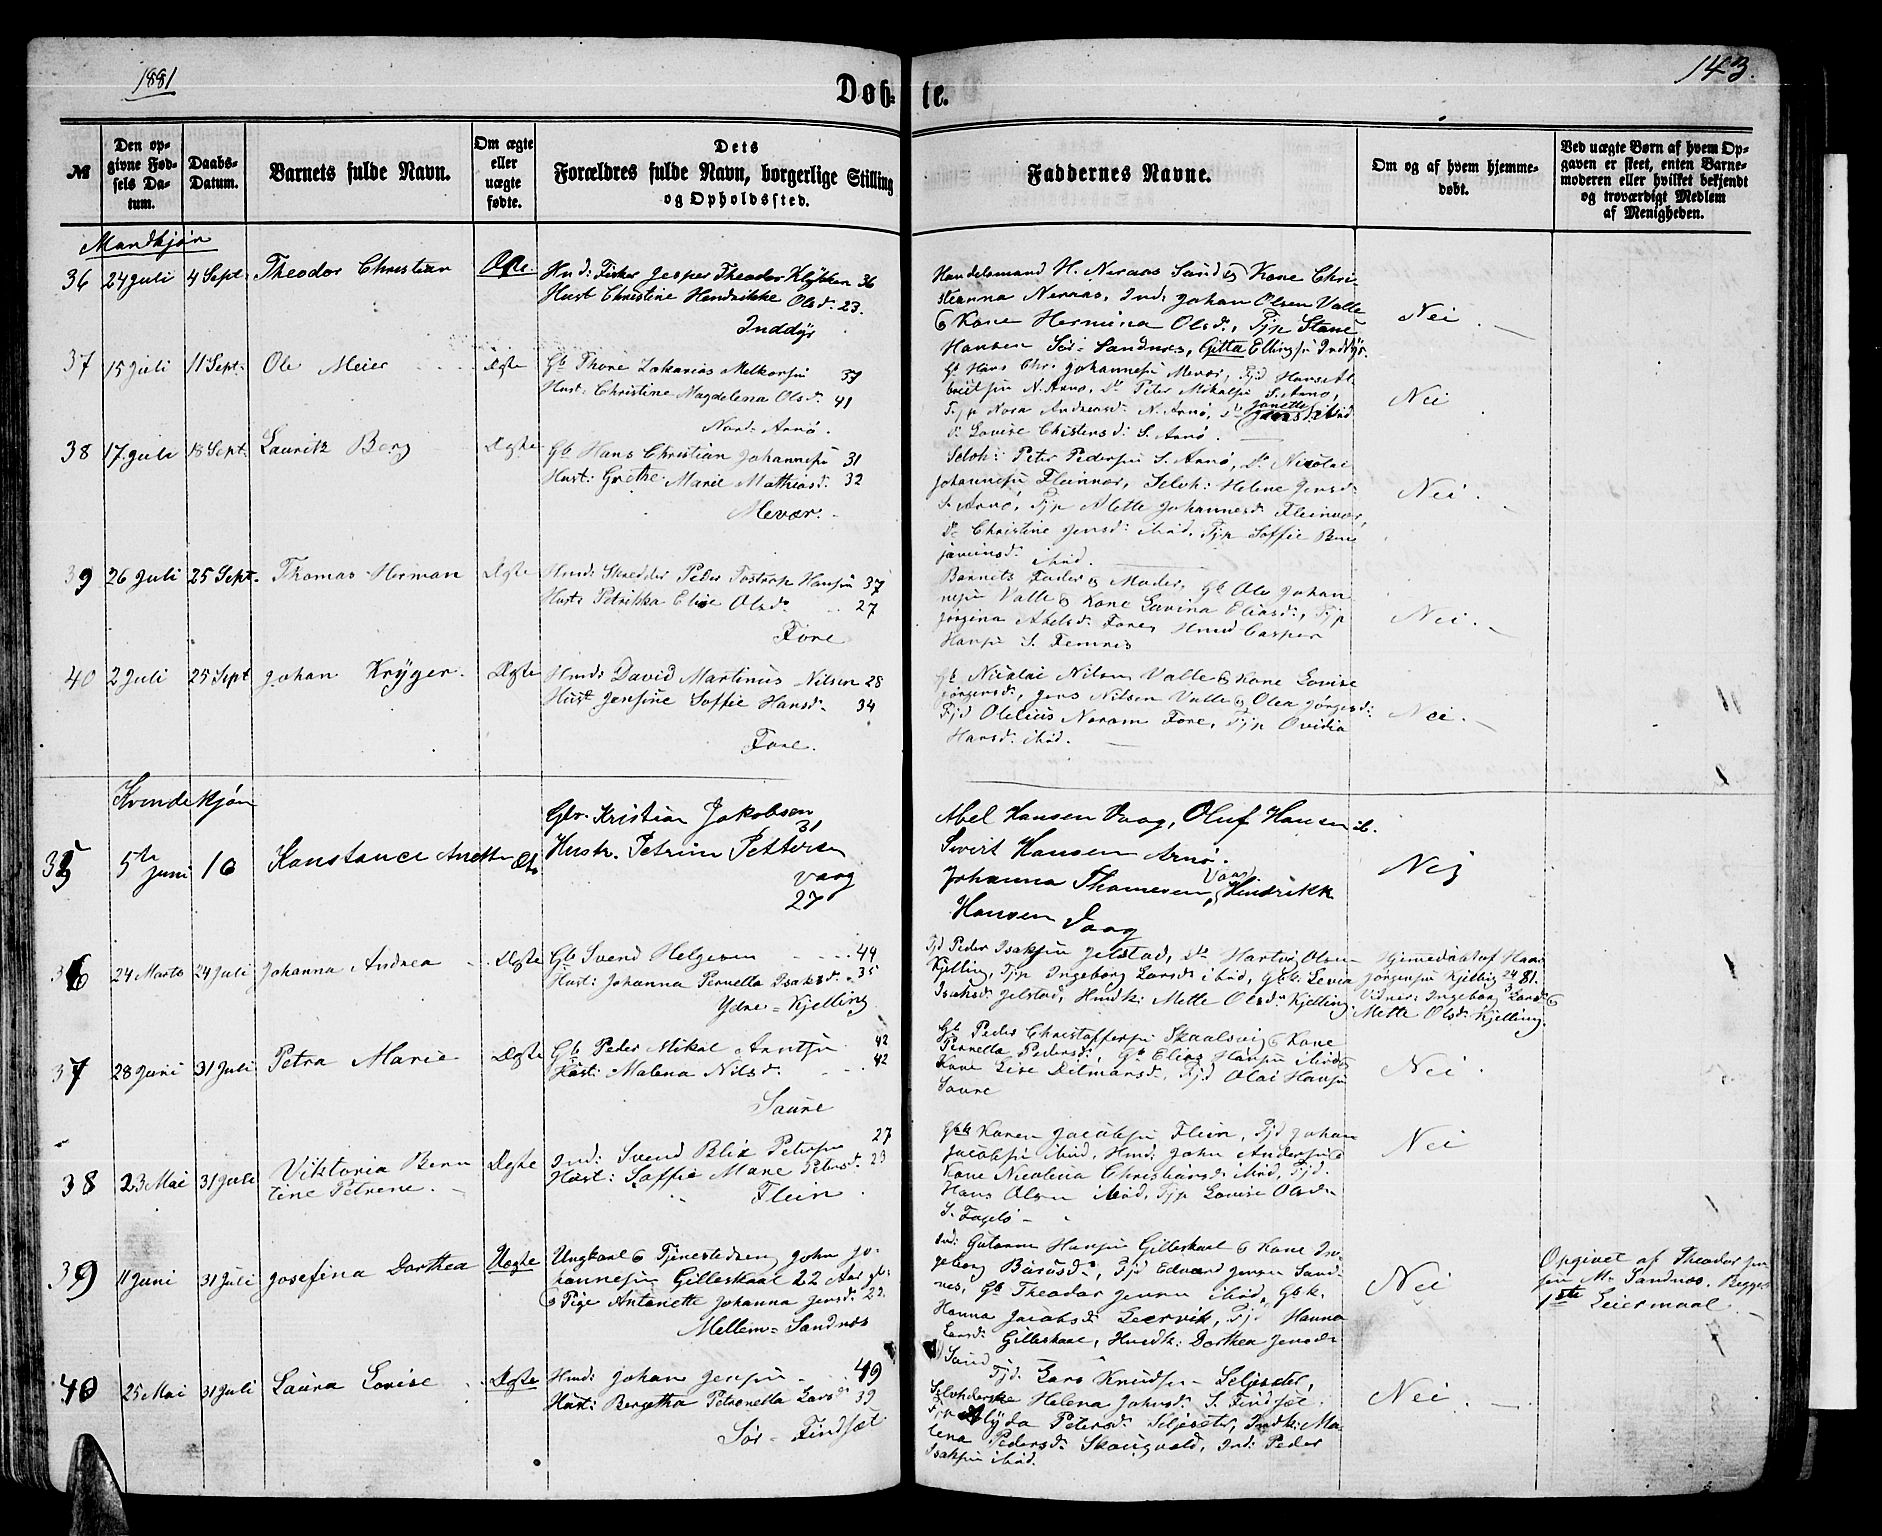 1881
143.
Døb-
te.
№
Den op-
givne Fød-
sels Da-
tum.
Daabs-
Datum.
Barnets fulde Navn.
Om ægte
eller
uægte
fødte.
Dets
Forældres fulde Navn, borgerlige Stilling
og Opholdssted.
Faddernes Navne.
Om og af hvem hjemme-
døbt.
Ved uægte Børn af hvem Op-
gaven er skeet, enten Barne-
moderen eller hvilket bekjendt
og troværdigt Medlem
af Menigheden.
Mandkjøn
36 24 Juli 4 Sept: Theodor Christian Ægte.
Hmd: Fisker Jesper Theodor Klykken 36
Hust Christine Hendrikke Olsd. 23.
Inddyr
Handelsmand H. Neraas Sund og Kone Chri-
stianna Neraas, Ind: Johan Olsen Valle
& Kone Hermina Olsd., Pjp Stane
Hansen Sør-Sandnes, Gitta Ellingsn Inddyr.
Nei
37 15 Juli 11 Sept: Ole Meier Ægte
Gb Thore Zakarias Melkorsn 37
Hust: Christine Magdelena Olsd: 41
Nord-Arnø.
Gb Hans Chr. Johannesn Mevær, Tjd Hans Al-
breitsn N. Arnø, Do Peter Mikalsn S. Arnø,
Tjp Nora Andreasd: N. Arnø, do Janette Jensd: ibid
do Lovise Christensd: S. Arnø.
Nei
38 17 Juli 18 Sept: Lauritz Berg Ægte
Gb Hans Christian Johannesn 31
Hust: Grethe Marie Mathiasd. 32
Mevær.
Selvh: Peter Pedersn S. Arnø, Do Nicolai
Johannesn Fleinvær, Selvh: Helene Jensd.
S. Arnø, Tjp Mette Johannesd. Fleinvær,
Do Christine Jensd: ibid, Tjp Soffie Ben-
jaminsd. ibid.
Nei.
39 26 Juli 25 Sept. Thomas Herman Ægte
Hmd: Skredder Peder Tostrup Hansn 37
Hust: Petrikka Elise Olsd. 27
Fore
Barnets Fader & Moder, Gb Ole Johan-
nesn Valle & Kone Lovina Eliasd., Tjp
Jørgina Abelsd. Fore, Hmd Casper
Hansn S. Femris
Nei.
40 2 Juli 25 Sept Johan Krÿger. Ægte
Hmd: David Martinus Nilsen 28
Hust Jensine Soffie Hansd. 34
Fore.
Gb Nicolai Nilsen Valle & Kone Lovise
Jørgensd., Jens Nilsen Valle & Olea Jørgensd:
Tjd Olelius Norum Fore, Tjp Ovidia
Hansd: ibid.
Nei.
Kvindekjøn
35 5te Juni 16 Konstance Anette Ægte
Gbr. Kristian Jakobsen
31
Hustr. Petrine Pettersen
Vaag
27
Abel Hansen Vaag, Oluf Hansen ib.
Sivert Hansen Arnø.
Johanna Thomesen Vaag, Hindrikk
Hansen Vaag
Nei
36 24 Marts 24 Juli Johanna Andrea Ægte
Gb Svend Helgesen 44
Hust: Johanna Pernella Isaksd. 35
Ydre-Kjelling
Tjd Peder Isaksn Jelstad, Do Hartvig Olsen
Kjelling, Tjp Ingeborg Larsd. ibid, Gbk: Levia
Isaksd. Jelstad, Hmdk: Mette Olsd. Kjelling.
Hjemedøbt af Hans
Jørgensn Kjelling 24/3 81.
Vidner: Ingeborg Larsd. &
Mette Olsd: Kjelling.
37 28 Juni 31 Juli Petra Marie Ægte
Gb Peder Mikal Arntsn 42
Hust: Malena Nilsd: 42
Saure
Gb Peder Christoffersn Skaalsvig & Kone
Pernella Pedersd:, Gb Elias Hansn ibid &
Kone Lise Ditmarsd., Tjd Olai Hansn
Saure
Nei
38 23 Mai 31 Juli Viktoria Bern-
tine Petrene. Ægte
Ind: Svend Blix Petersn 27
Hust: Soffie Marie Petersd. 23
Flein.
Gbk Karen Jacobsn Flein, Tjd Johan
Jacobsn ibid, Hmd: John Andersn &
Kone Nicolina Christiansd: ibid, Tjd.
Hans Olsen ibid, Tjp Lovise Olsd.
S. Fugelø
Nei
39 11 Juni 31 Juli Josefina Dorthea Uægte
Ungkarl & Tjenestedreng John Jo-
hannesn Gilleskaal 22 Aar gl.
& Pige Antonette Johanna Jensd. 22.
Mellem-Sandnes
Ind: Gutorm Hansn Gilleskaal & Kone In-
geborg Baarsd:, Tjd Edvard Jensen Sand-
nes, Gb Theodor Jensen ibid, Gbk:
Hanna Jacobsd: Leervik, Tjd Hanna
Larsd: Gilleskaal, Hmdk: Dorthea Jensd.
Sund
Nei
Opgivet af Theodor Jen-
sen M. Sandnes. Begges
1ste Leiermaal.
40 25 Mai 31 Juli Laura Lovise Ægte
Hmd: Johan Jensn 49
Hust: Bergetha Petronella Larsd. 39
Sør-Findsæt
Tjd: Lars Knudsn Seljeseter,
Selvhderske Helena Johnsd: S. Findset.
Tjp Alyda Petersd: Seljeseter, Indk: Ma-
lena Pedersd: Skougvold, Ind: Peder
Isaksn ibid.
Nei